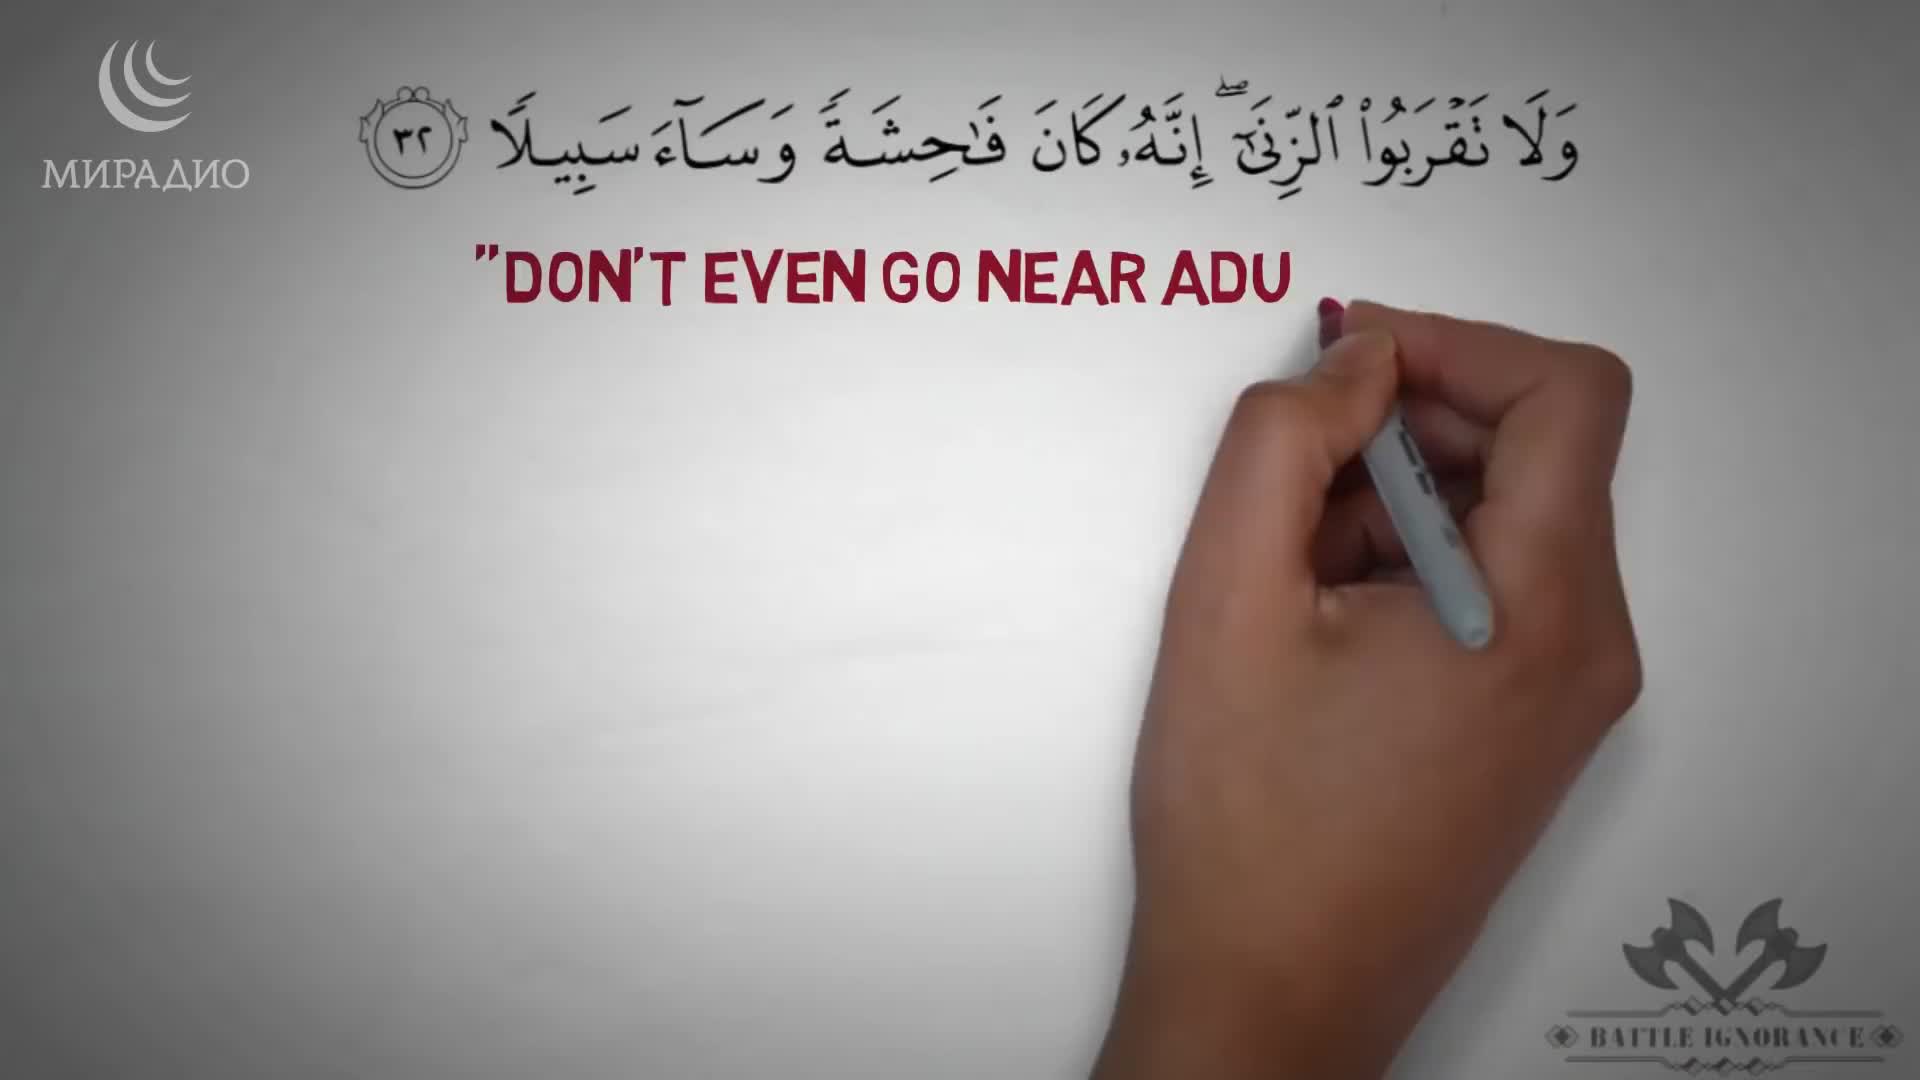 МИРАДИО
وَلَا تَقْرَبُوا۟ ٱلزِّنَىٰٓ ۖ إِنَّهُۥ كَانَ فَـٰحِشَةً وَسَآءَ سَبِيلًا ٣٢
"DON'T EVEN GO NEAR ADU
BATTLE IGNORANCE